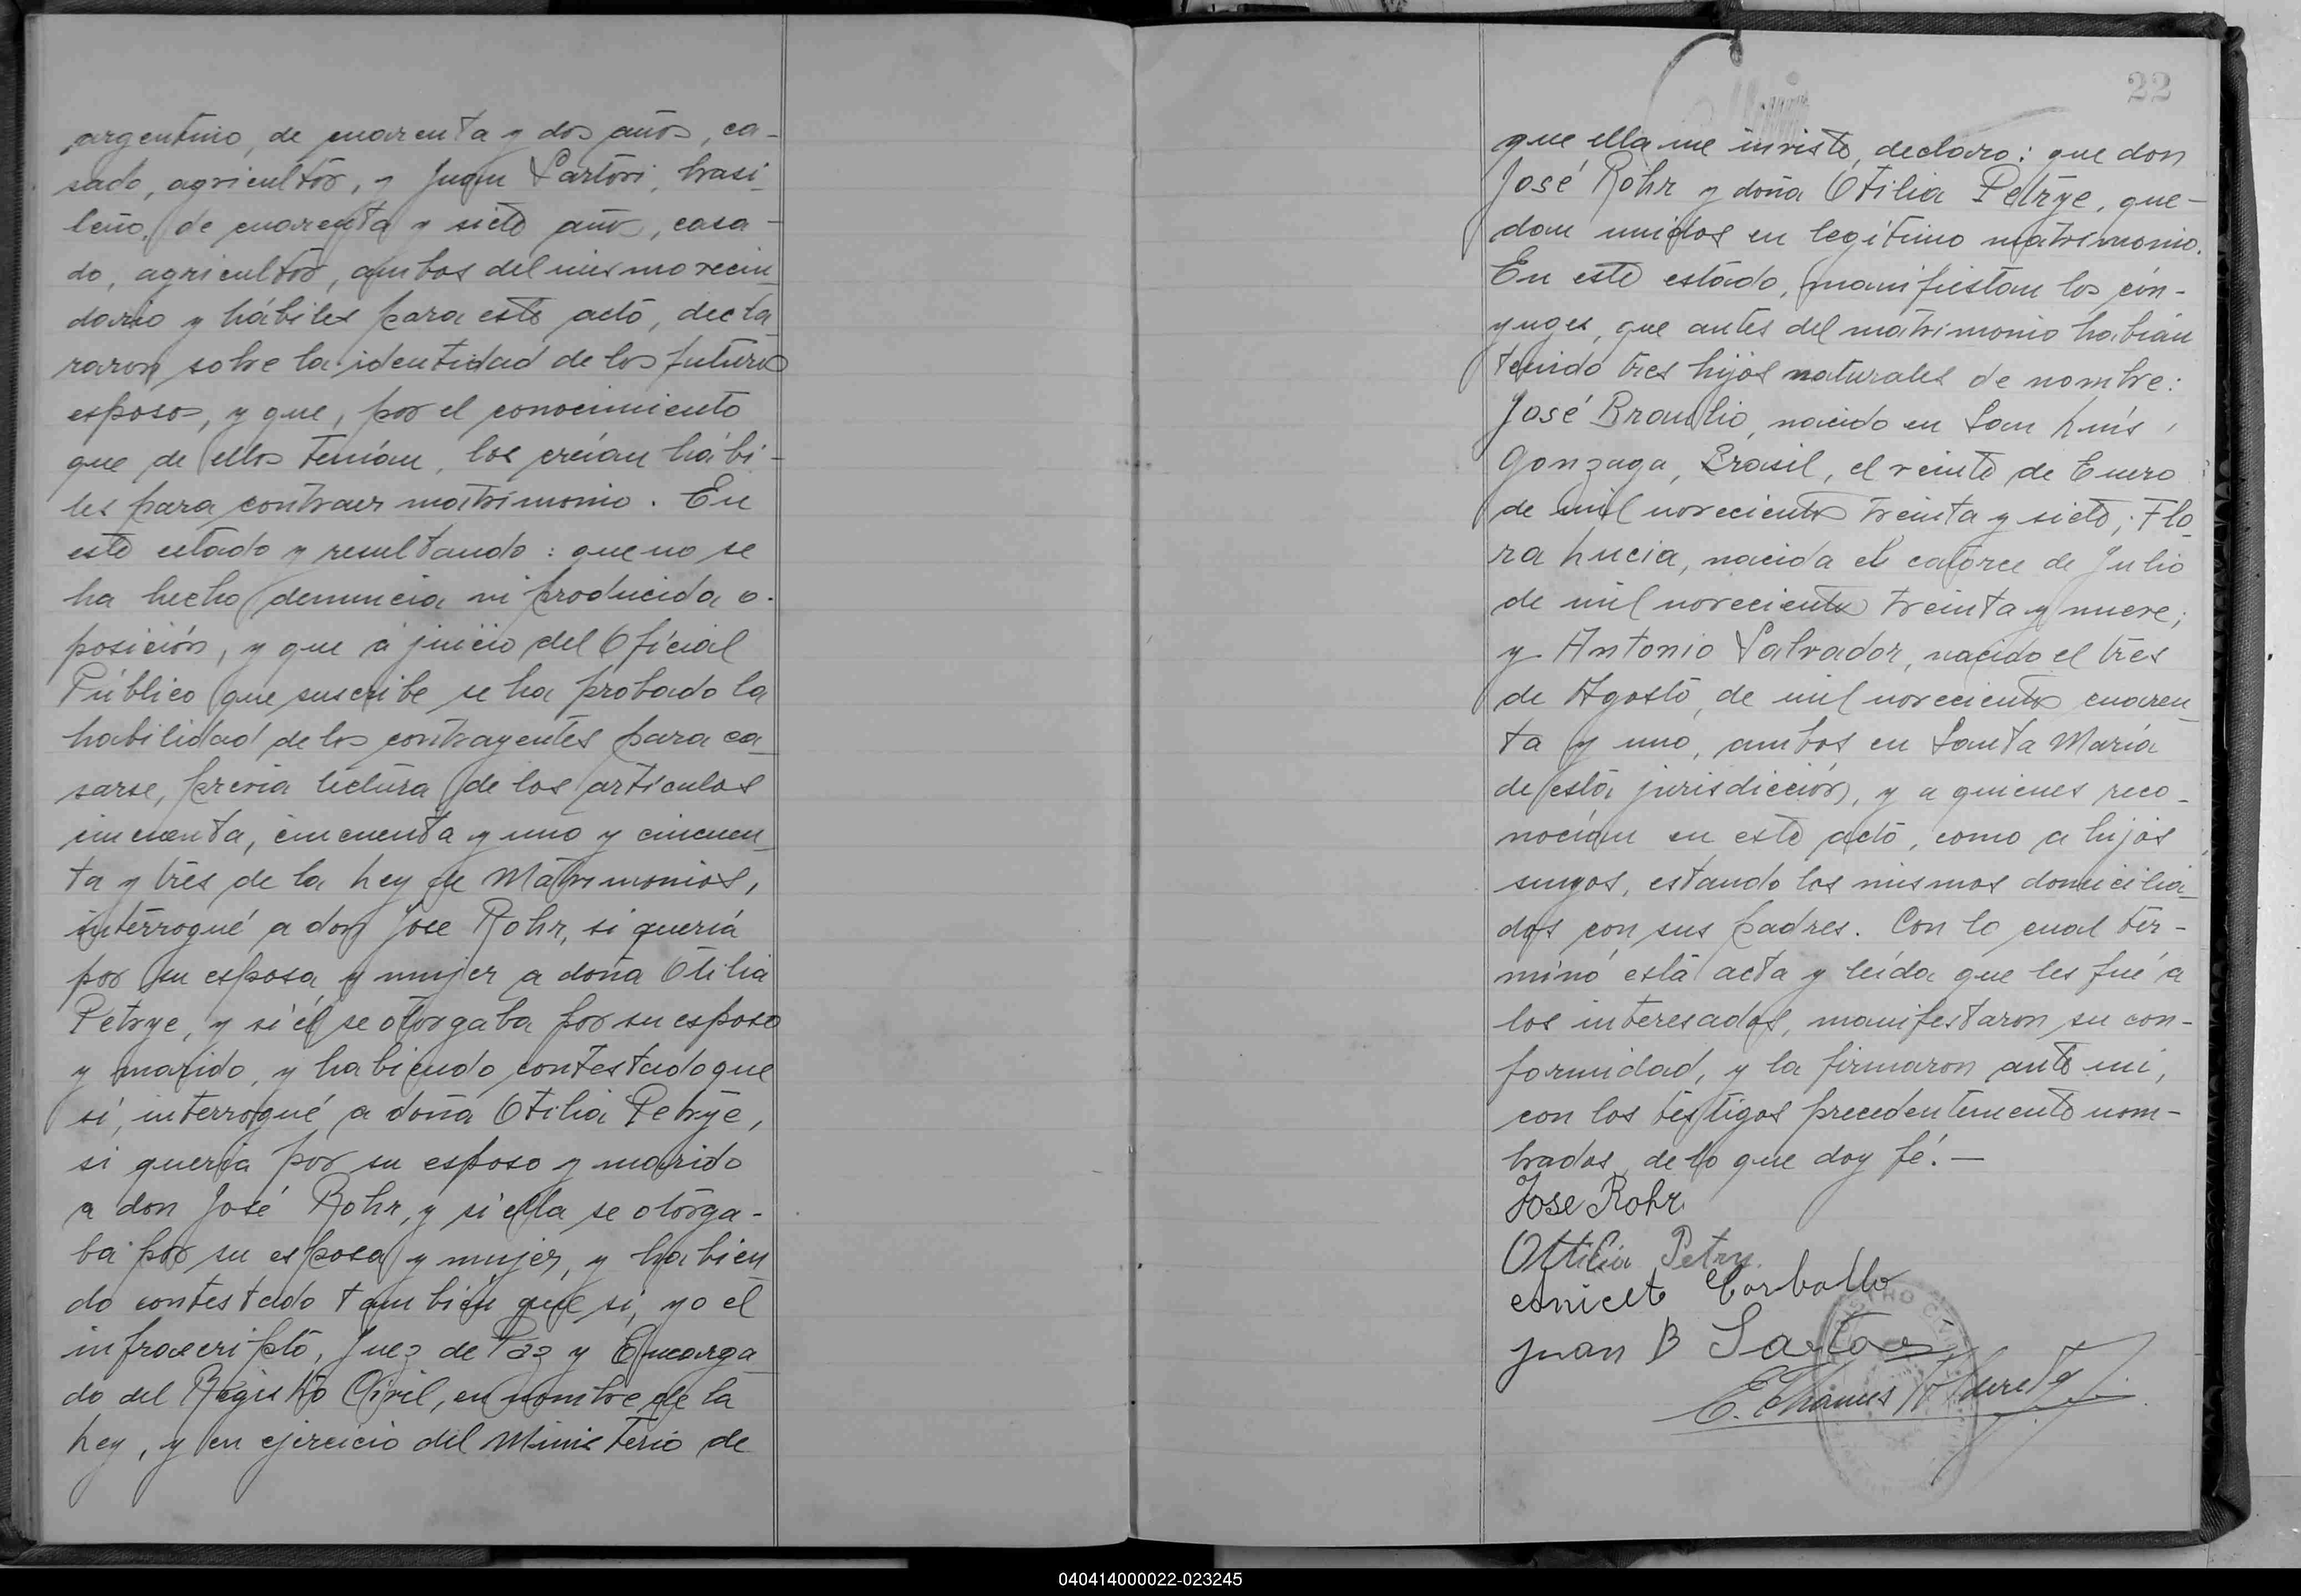 argentino, de cuarenta y dos años, ca-
sado, agricultor, y Juan Sartori, brasi-
leño, de cuarenta y siete años, casa-
do, agricultor, ambos del mismo vecin-
dario y hábiles para este acto, decla-
raron sobre la identidad de los futuros
esposos, y que, por el conocimiento
que de ellos tenían, los creían hábi-
les para contraer matrimonio. En
este estado y resultando: que no se
ha hecho denuncia ni producida o-
posición, y que á juicio del Oficial
Público que suscribe se ha probado la
habilidad de los contrayentes para ca-
sarse, previa lectura de los artículos
cincuenta, cincuenta y uno y cincuen-
ta y tres de la Ley de Matrimonios,
interrogué a don José Rohr, si quería
por su esposa y mujer a doña Otilia
Petrye, y si él se otorgaba por su esposo
y marido, y habiendo contestado que
sí, interrogué a doña Otilia Petrye,
si quería por su esposo y marido
a don José Rohr, y si ella se otorga-
ba por su esposa y mujer, y habien-
do contestado también que sí, yo el
infrascripto, Juez de Paz y Encarga-
do del Registro Civil, en nombre de la
Ley, y en ejercicio del Ministerio de
22
que ella me inviste, declaro: que don
José Rohr y doña Otilia Petrye, que-
dan unidos en legítimo matrimonio.
En este estado, manifiestan los cón-
yuges, que antes del matrimonio habían
tenido tres hijos naturales de nombre:
José Braulio, nacido en San Luis
Gonzaga, Brasil, el veinte de Enero
de mil novecientos treinta y siete; Flo-
ra Lucia, nacida el catorce de Julio
de mil novecientos treinta y nueve;
y Antonio Salvador, nacido el tres
de Agosto, de mil novecientos cuaren-
ta y uno, ambos en Santa María
de esta jurisdicción, y a quienes reco-
nocían en este acto, como a hijos
suyos, estando los mismos domicilia-
dos con sus padres. Con lo cual ter-
minó esta acta y leída que les fué a
los interesados, manifestaron su con-
formidad, y la firmaron ante mi,
con los testigos precedentemente nom-
brados, de lo que doy fé.—
Jose Rohr
Ottilia Petry.
Aniceto Carballo
Juan B Sartori
040414000022-023245